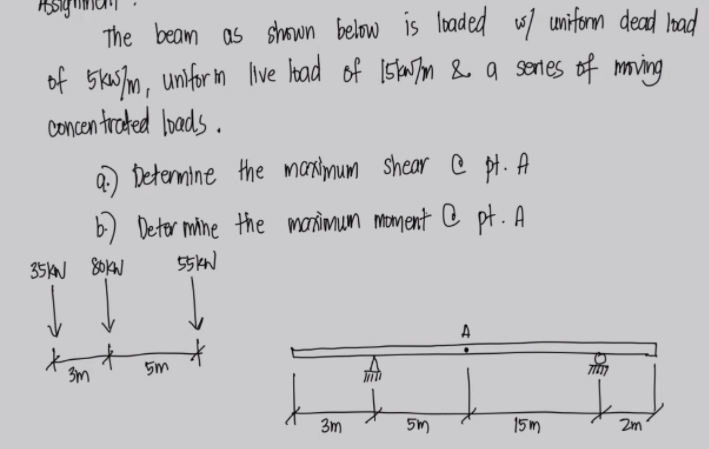 Assignment :
The beam as shown below is loaded w/ uniform dead load
of 5kN/m, uniform live load of 15kN/m & a series of moving
concentrated loads.
a.) Determine the maximum shear @ pt. A
b.) Determine the maximum moment @ pt. A
35kN 80kN 55kN
3m 5m
A
3m 5m 15m 2m